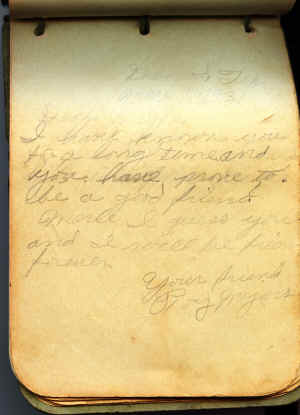 Dear
I have known you
for a long time and
you have prove to
be a good friend
Merle I guess you
and I will be frien
forever
Your friend
Roy Myers